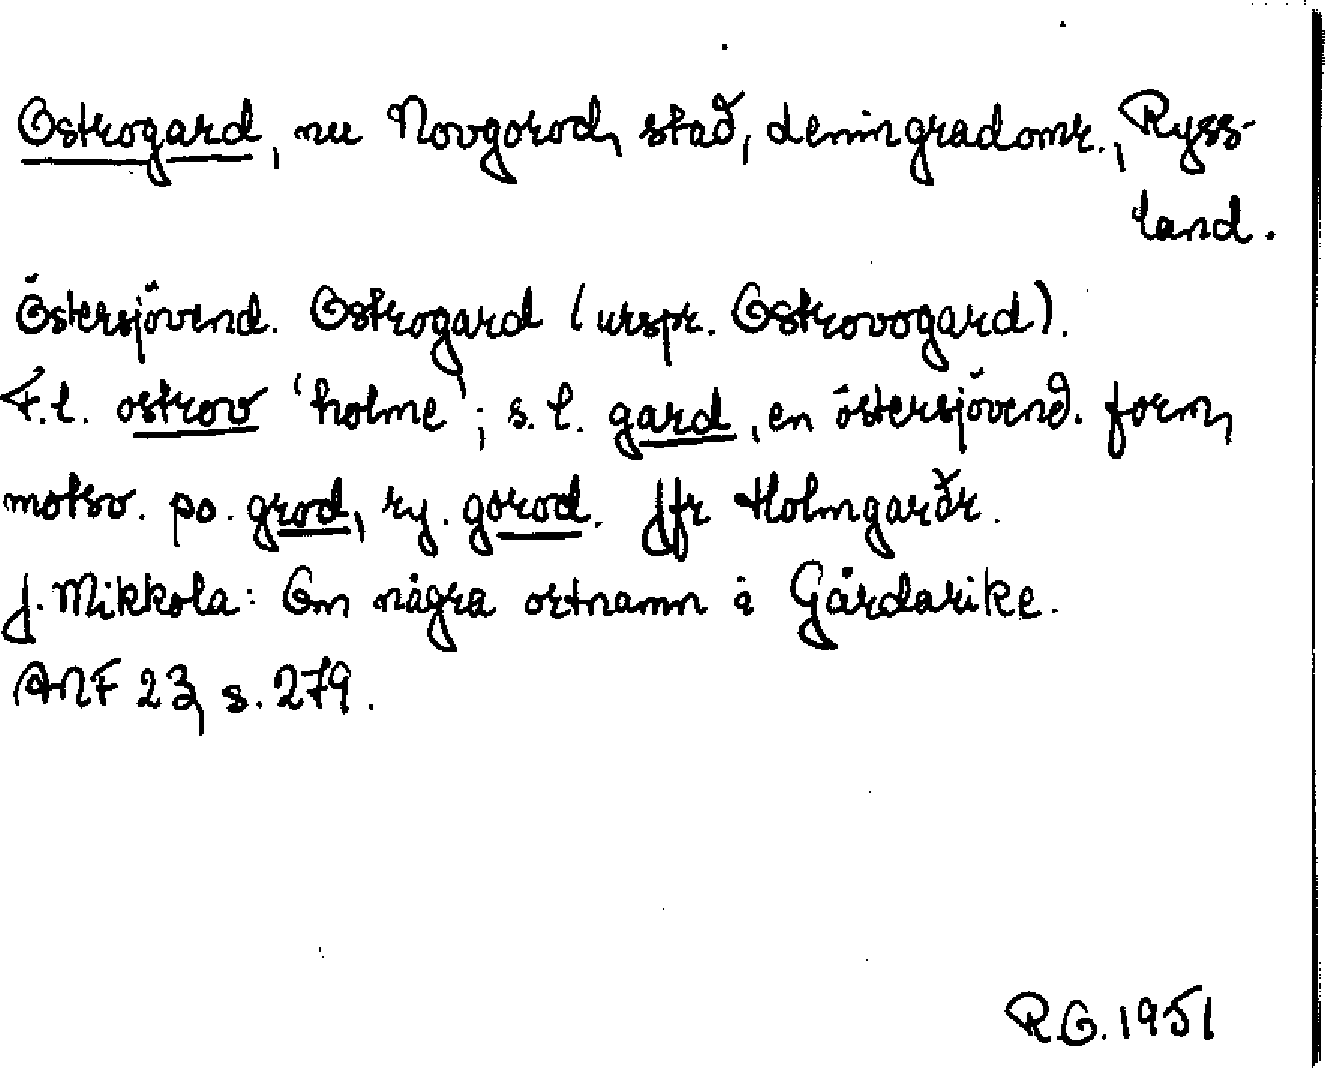 Ostrogard, nu Novgorod, stad, Leningradomr., Ryss-
land.
Östersjövend. Ostrogard (urspr. Ostrovogard).
F.l. ostrov 'holme'; s.l. gard, en östersjövend. form,
motsv. po. grod, ry. gorod. Jfr Holmgarðr.
J. Mikkola: Om några ortnamn i Gårdarike.
ANF 23, s. 279.
R.G. 1951